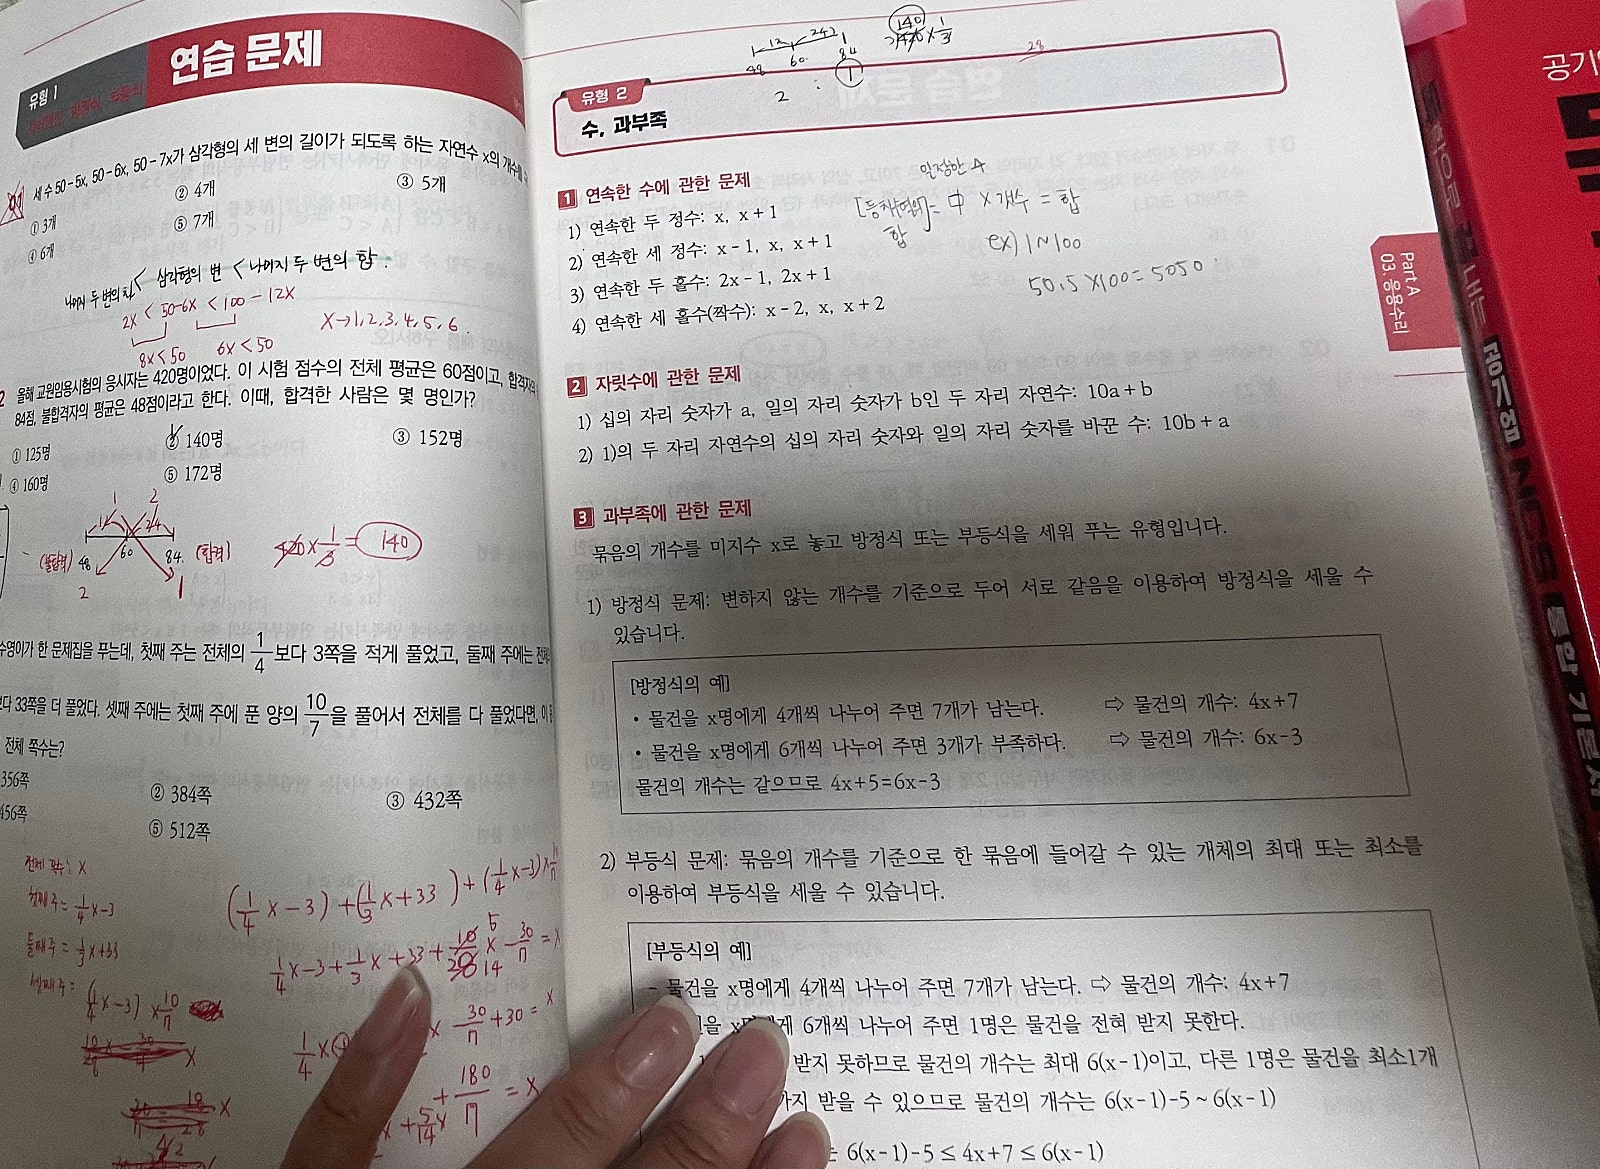 유형 1
연습 문제
세 수 50-5x, 50-6x, 50-7x가 삼각형의 세 변의 길이가 되도록 하는 자연수 x의 개수를
① 3개
② 4개
③ 5개
④ 6개
⑤ 7개
나머지 두 변의 차 < 삼각형의 변 < 나머지 두 변의 합.
2x < 50-6x < 100-12x
8x < 50
6x < 50
x→1, 2, 3, 4, 5, 6.
2 올해 교원임용시험의 응시자는 420명이었다. 이 시험 점수의 전체 평균은 60점이고, 합격자의
84점, 불합격자의 평균은 48점이라고 한다. 이때, 합격한 사람은 몇 명인가?
① 125명
② 140명
③ 152명
④ 160명
⑤ 172명
1 2
12 24
(불합격) 48 60 84 (합격)
2 1
420 × 1/3 = 140
수영이가 한 문제집을 푸는데, 첫째 주는 전체의 1/4보다 3쪽을 적게 풀었고, 둘째 주에는 전체
보다 33쪽을 더 풀었다. 셋째 주에는 첫째 주에 푼 양의 10/7을 풀어서 전체를 다 풀었다면, 이
전체 쪽수는?
356쪽
② 384쪽
③ 432쪽
456쪽
⑤ 512쪽
전체 쪽수 : x
첫째 주 = 1/4x-3
둘째 주 = 1/3x+33
셋째 주 = (1/4x-3) × 10/7
(1/4x-3)+(1/3x+33)+(1/4x-3)×
1/4x-3+1/3x+33+
5
14
x-30/7=x
1/4x
x-30/7+30=x
+180/7=x
+5/14x
12 24
48 60 84
2 : 1
140
420 × 1/3
28
유형 2
수, 과부족
1 연속한 수에 관한 문제
1) 연속한 두 정수: x, x+1
2) 연속한 세 정수: x-1, x, x+1
3) 연속한 두 홀수: 2x-1, 2x+1
4) 연속한 세 홀수(짝수): x-2, x, x+2
일정한 수
= 中 × 개수 = 합
합
ex) 1~100
50.5×100=5050
2 자릿수에 관한 문제
1) 십의 자리 숫자가 a, 일의 자리 숫자가 b인 두 자리 자연수: 10a+b
2) 1)의 두 자리 자연수의 십의 자리 숫자와 일의 자리 숫자를 바꾼 수: 10b+a
3 과부족에 관한 문제
묶음의 개수를 미지수 x로 놓고 방정식 또는 부등식을 세워 푸는 유형입니다.
1) 방정식 문제: 변하지 않는 개수를 기준으로 두어 서로 같음을 이용하여 방정식을 세울 수
있습니다.
[방정식의 예]
• 물건을 x명에게 4개씩 나누어 주면 7개가 남는다. ⇨ 물건의 개수: 4x+7
• 물건을 x명에게 6개씩 나누어 주면 3개가 부족하다. ⇨ 물건의 개수: 6x-3
물건의 개수는 같으므로 4x+5=6x-3
2) 부등식 문제: 묶음의 개수를 기준으로 한 묶음에 들어갈 수 있는 개체의 최대 또는 최소를
이용하여 부등식을 세울 수 있습니다.
[부등식의 예]
- 물건을 x명에게 4개씩 나누어 주면 7개가 남는다. ⇨ 물건의 개수: 4x+7
을 x명에게 6개씩 나누어 주면 1명은 물건을 전혀 받지 못한다.
받지 못하므로 물건의 개수는 최대 6(x-1)이고, 다른 1명은 물건을 최소1개
까지 받을 수 있으므로 물건의 개수는 6(x-1)-5 ~ 6(x-1)
6(x-1)-5 ≤ 4x+7 ≤ 6(x-1)
Part A
03. 응용수리
공기업 NCS 통합 기본서
공기